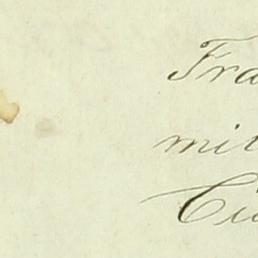 Fra
mit
Cu